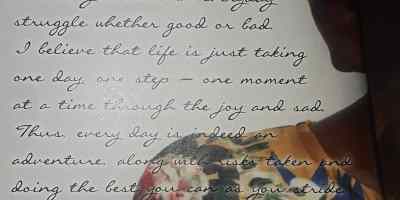 struggle whether good or bad.
I believe that life is just taking
one day, one step – one moment
at a time through the joy and sad.
Thus, every day is indeed an
adventure, along with risks taken and
doing the best you can as you stride